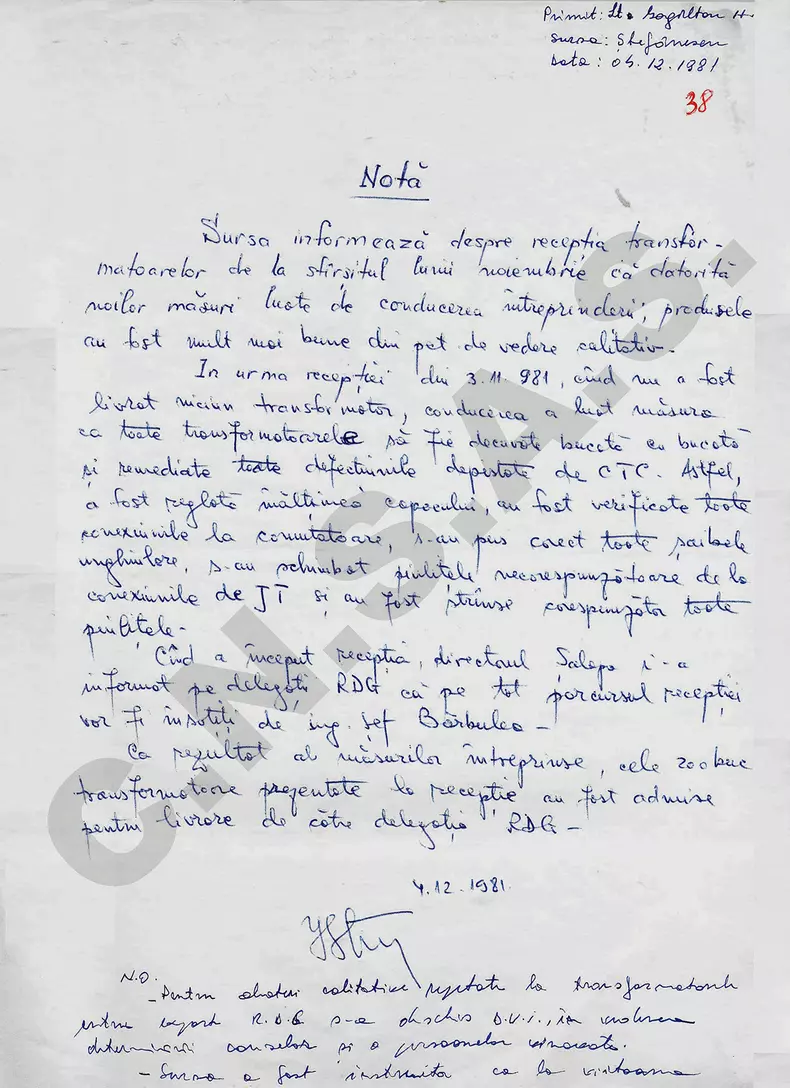 Primit: Lt.
Sursa: Ștefănescu
Data: 04.12.1981
38
Notă
Sursa informează despre recepția transfor-
matoarelor de la sfîrșitul lunii noiembrie că datorită
noilor măsuri luate de conducerea întreprinderii, produsele
au fost mult mai bune din pct. de vedere calitativ.
In urma recepției din 3.11.981, cînd nu a fost
livrat niciun transformator, conducerea a luat măsura
ca toate transformatoarele să fie decuvate bucată cu bucată
și remediate toate defecțiunile depistate de CTC. Astfel,
a fost reglată înălțimea capacului, au fost verificate toate
conexiunile la comutatoare, s-au pus corect toate șaibele
unghiulare, s-au schimbat piulițele necorespunzătoare de la
conexiunile de JT și au fost strînse corespunzător toate
piulițele-
Cînd a început recepția, directorul Salapa i-a
informat pe delegații RDG că pe tot parcursul recepției
vor fi însoțiți de ing. șef Bărbulea-
Ca rezultat al măsurilor întreprinse, cele 200 buc
transformatoare prezentate la recepție au fost admise
pentru livrare de către delegația RDG-
4.12.1981.
N.O.
-Pentru abateri calitative repetate la transformatorele
pentru export R.D.G. s-a deschis D.U.I., în vederea
determinării cauzelor și a persoanelor vinovate.
- Sursa a fost instruită ca la viitoarea
C.N.S.A.S.